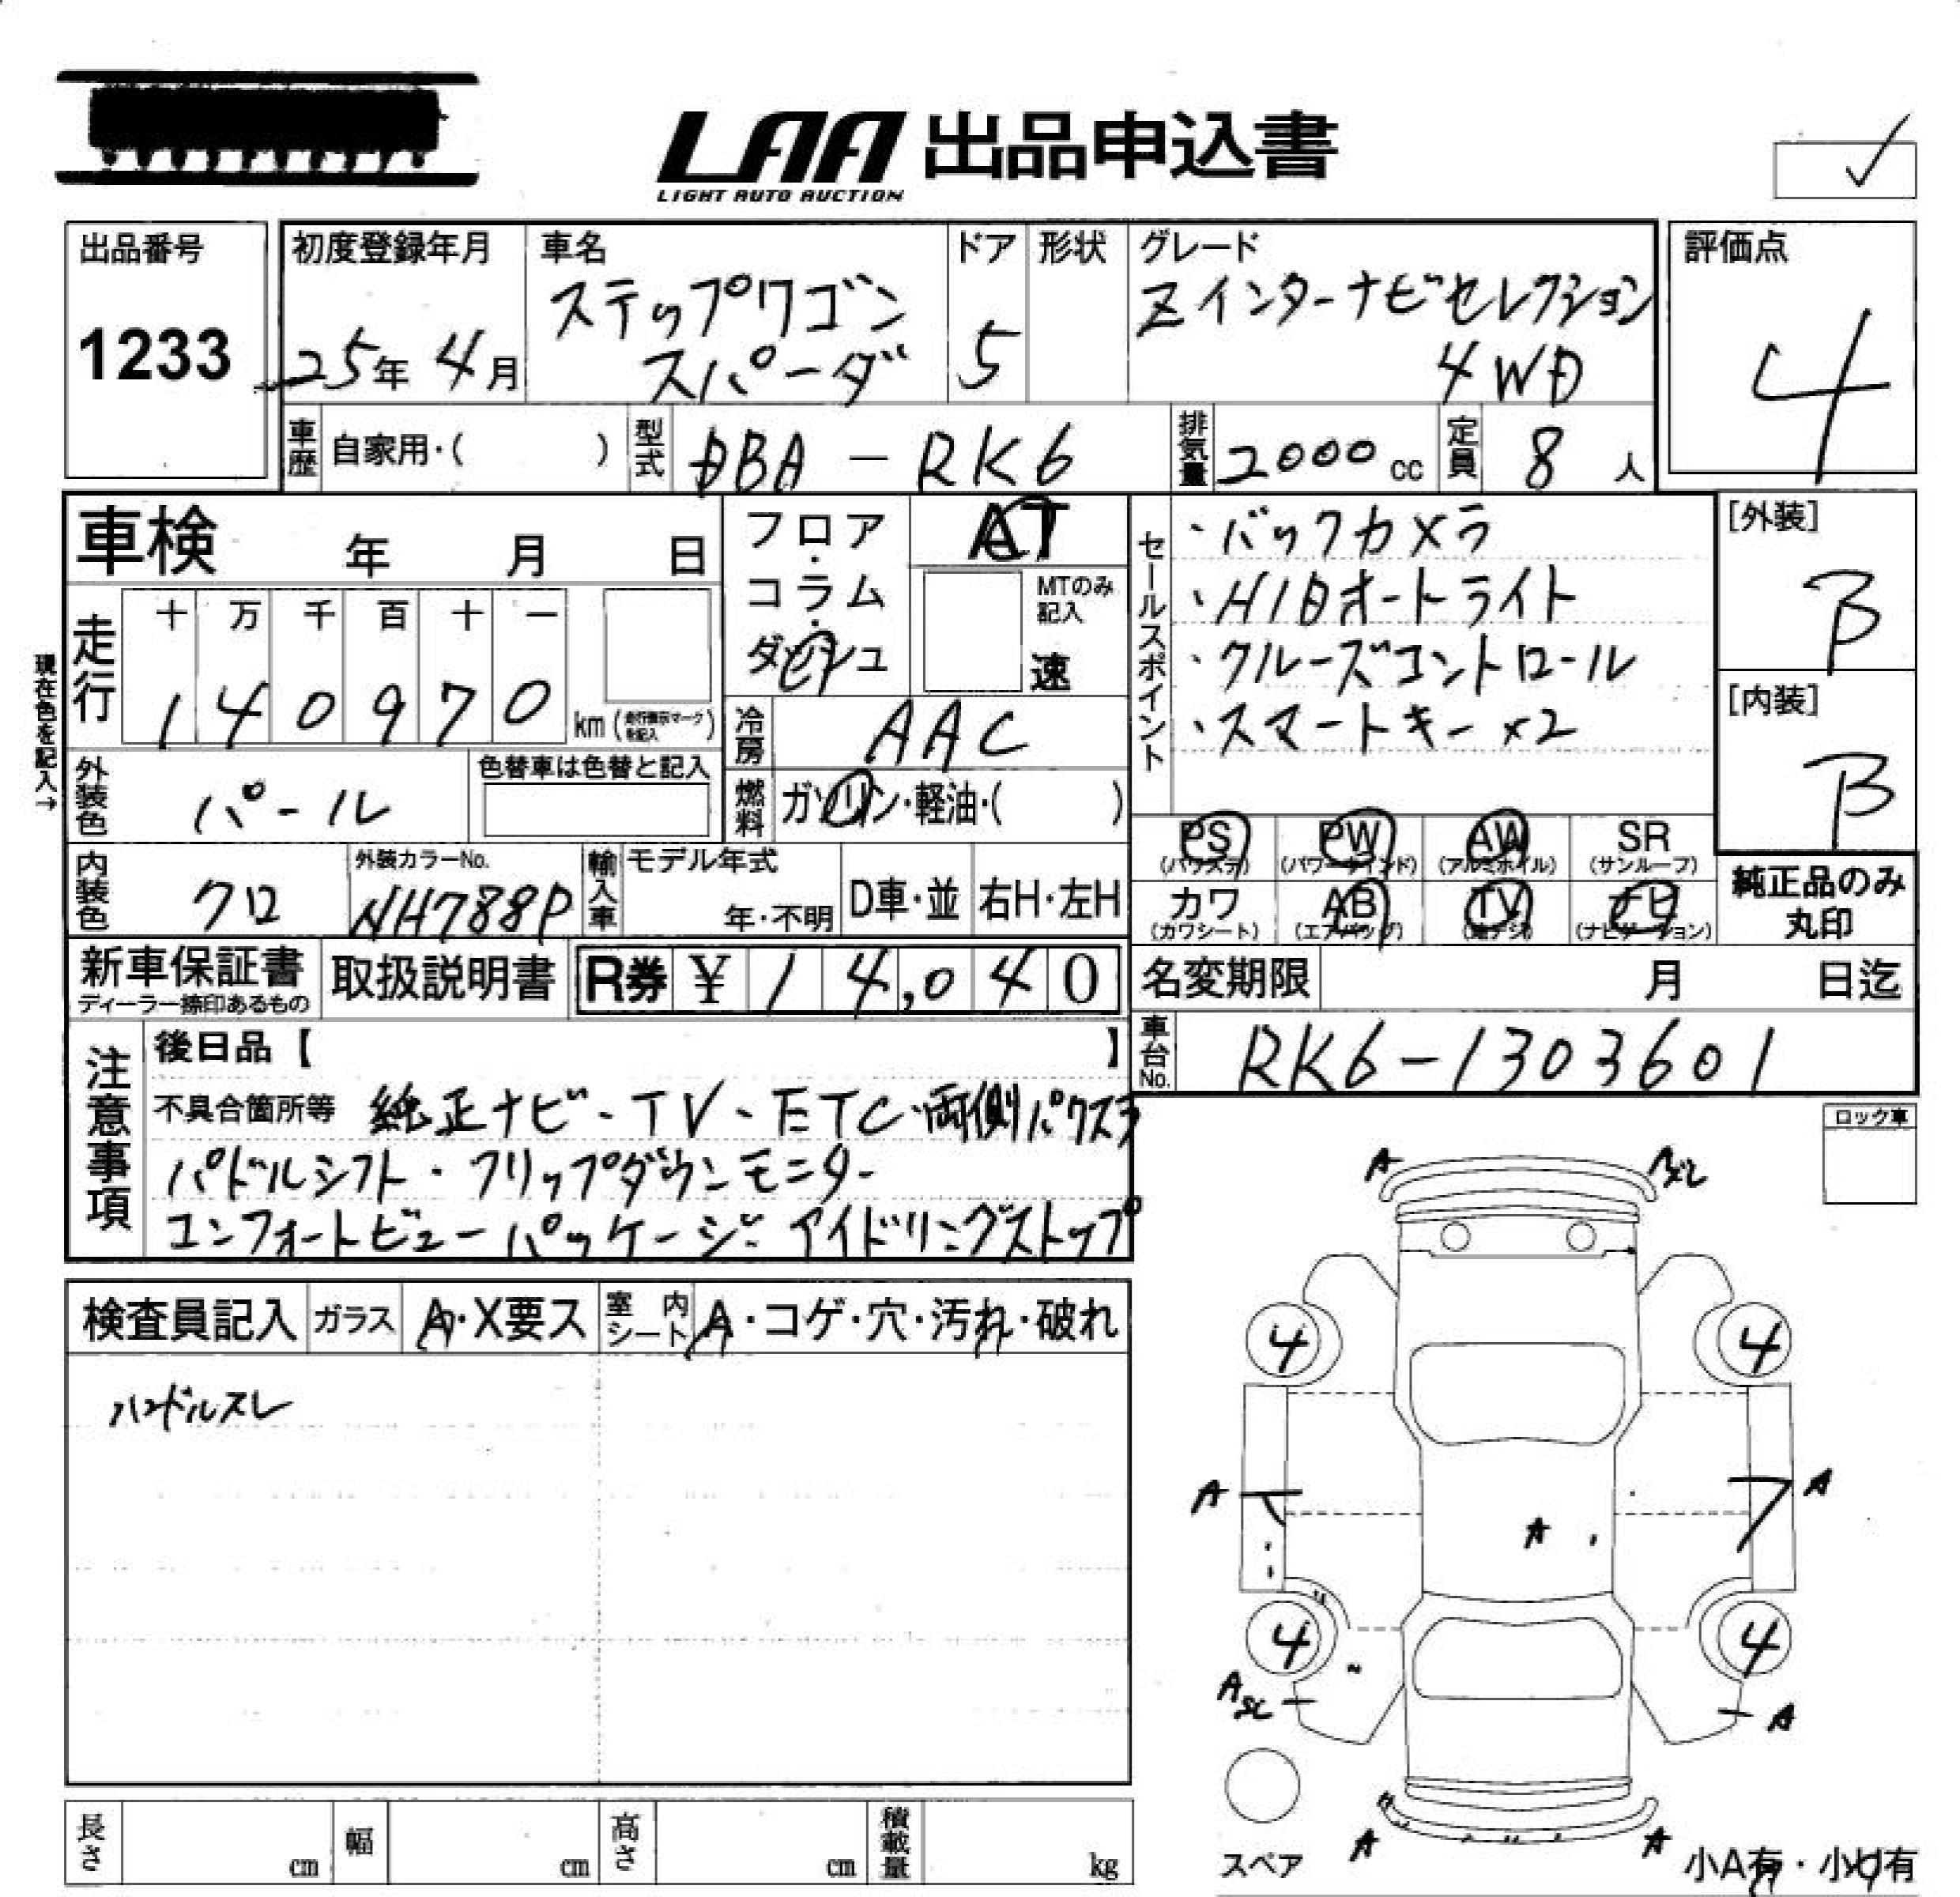 LAA 出品申込書
LIGHT AUTO AUCTION
出品番号
1233
初度登録年月
25年 4月
車名
ステップワゴン
スパーダ
ドア
5
形状
グレード
Zインターナビセレクション
4WD
評価点
4
車歴 自家用・( )
型式 DBA-RK6
排気量 2000 cc
定員 8 人
車検 年 月 日
フロア・コラム・ダッシュ
AT
MTのみ記入
速
セールスポイント
・バックカメラ
・HIDオートライト
・クルーズコントロール
・スマートキー×2
[外装]
B
[内装]
B
現在色を記入→
走行 十 万 千 百 十 一
1 4 0 9 7 0 km (走行表示マークを記入)
冷房 AAC
燃料 ガソリン・軽油・( )
外装色 パール
色替車は色替と記入
内装色 クロ
外装カラーNo.
NH788P
輸入車 モデル年式
年・不明
D車・並
右H・左H
PS (パワステ)
PW (パワーウインド)
AW (アルミホイル)
SR (サンルーフ)
カワ (カワシート)
AB (エアバッグ)
TV (地デジ)
ナビ (ナビゲーション)
純正品のみ丸印
新車保証書
ディーラー捺印あるもの
取扱説明書
R券 ¥ 14,040
名変期限 月 日迄
車台No. RK6-1303601
注意事項
後日品【 】
不具合箇所等 純正ナビ・TV・ETC・両側パワスラ
パドルシフト・フリップダウンモニター
コンフォートビューパッケージ・アイドリングストップ
ロック車
検査員記入
ガラス A・X要ス
室内シート A・コゲ・穴・汚れ・破れ
ハンドルスレ
A
4 4
A A
A
4 4
A
A A
スペア
小A有・小U有
長さ cm
幅 cm
高さ cm
積載量 kg